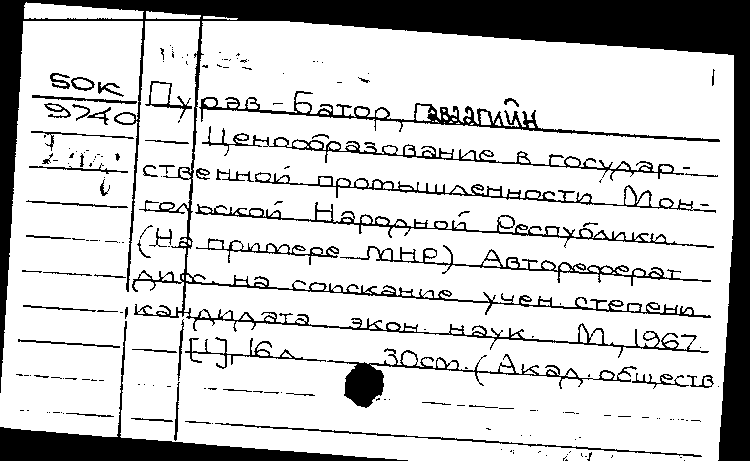 1
50К
9740
Пурэв-Батор, Гаваагийн
Ценообразование в государ-
ственной промышленности Мон-
гольской Народной Республики.
(На примере МНР) Автореферат
дис. на соискание учен. степени
кандидата экон. наук. М., 1967
[1], 16 л 30см. (Акад. обществ